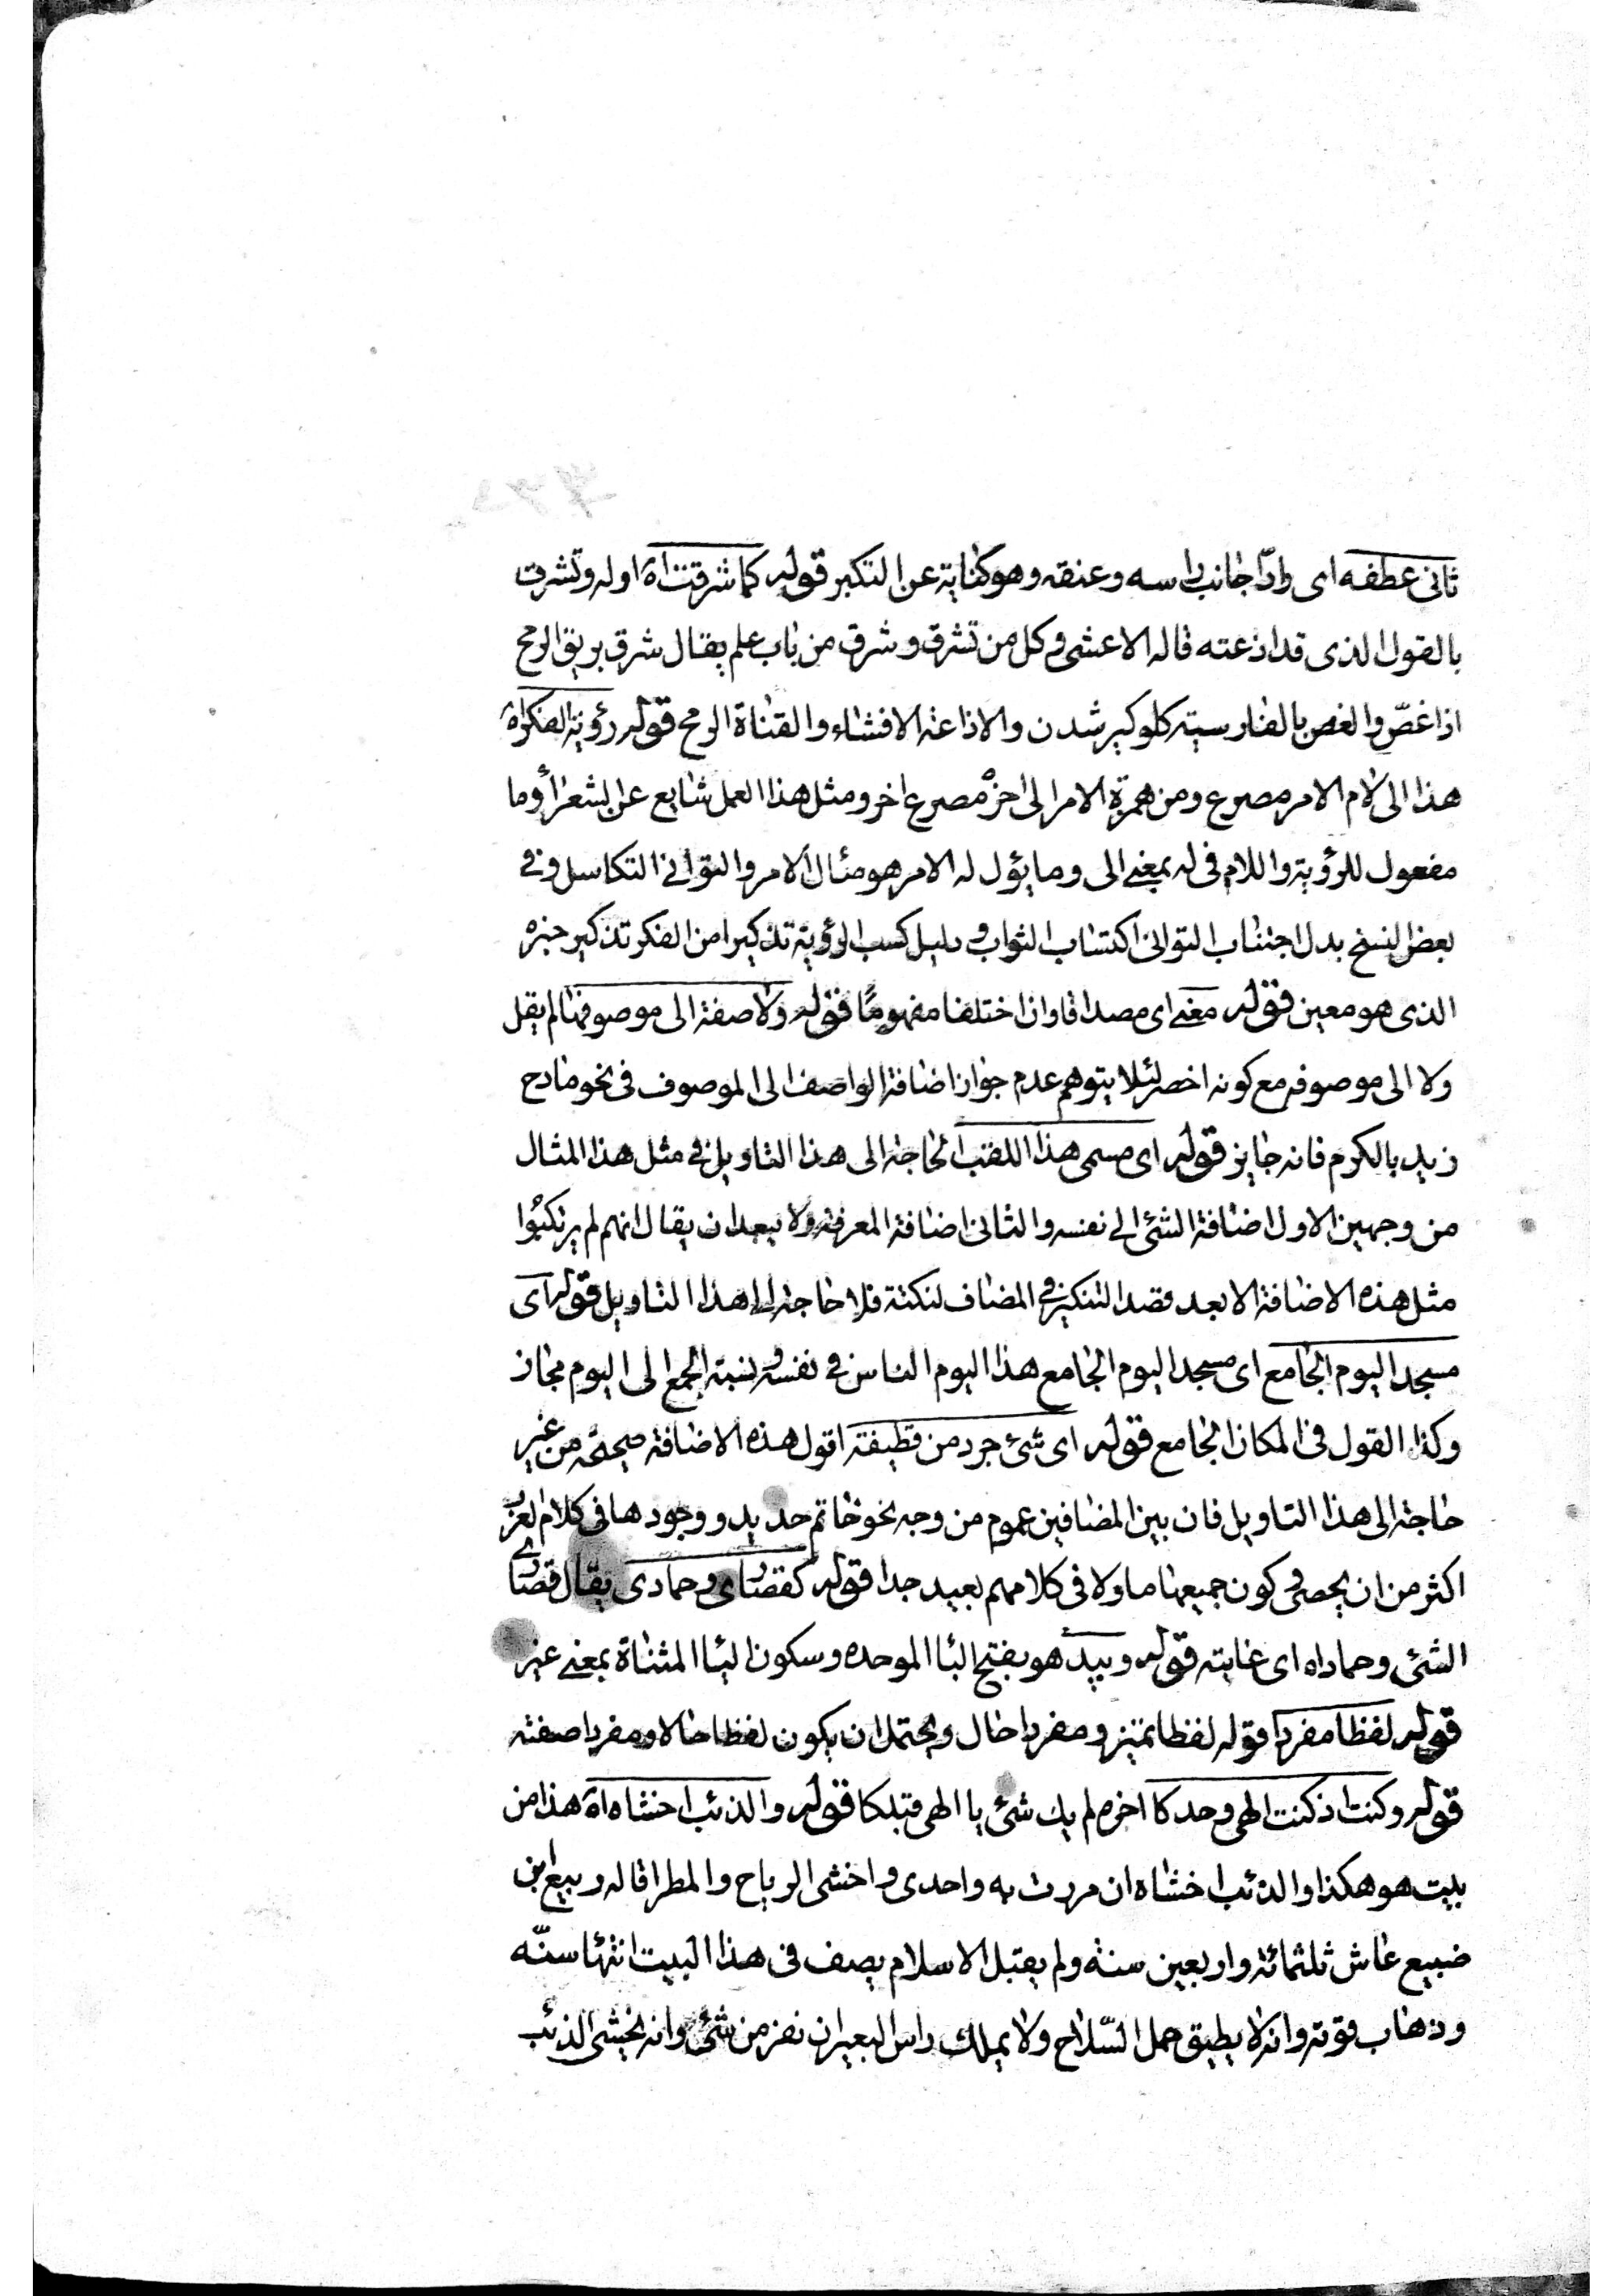 ثانى عطفه اى رادّا جانب راسه وعنقه وهو كناية عن التكبر قوله كما شرقت اه اوله وتشرق
بالقول الذى قد اذعته قاله الاعشى وكل من تشرق وشرق من باب علم يقال شرق بريق الرمح
اذا غصّ والغص بالفارسية كلوكير شدن والاذاعة الافشاء والقناة الرمح قوله رؤية الفكر اه
هذا الى لام الامر مصرع ومن همزة الامر الى اخره مصرع اخر ومثل هذا العمل شايع عن الشعراء وما
مفعول للرؤية واللام فى له بمعنى الى وما يؤل له الامر هو مئال الامر والتوانى التكاسل وفى
بعض النسخ بدل اجتناب التوانى اكتساب الثواب ودليل كسب الرؤية تذكيرا من الفكر تذكير خبره
الذى هو معين قوله معنى اى مصداقا وان اختلفا مفهومًا قوله ولا صفة الى موصوفها لم يقل
ولا الى موصوفه مع كونه اخصر لئلا يتوهم عدم جواز اضافة الواصف الى الموصوف فى نحو مادح
زيد بالكرم فانه جايز قوله اى مسمى هذا اللقب الحاجة الى هذا التاويل فى مثل هذا المثال
من وجهين الاول اضافة الشئ الى نفسه والثانى اضافة المعرفة ولا يبعد ان يقال انهم لم يرتكبوا
مثل هذه الاضافة الا بعد قصد التنكير فى المضاف لنكتة فلا حاجة الى هذا التاويل قوله اى
مسجد اليوم الجامع اى مسجد اليوم الجامع هذا اليوم الناس فى نفسه ونسبة الجمع الى اليوم مجاز
وكذا القول فى المكان الجامع قوله اى شئ جرد من قطيفة اقول هذه الاضافة صحيحة من غير
حاجة الى هذا التاويل فان بين المضافين عموم من وجه نحو خاتم حديد ووجودها فى كلام العرب
اكثر من ان يحصى وكون جميعها ماولا فى كلامهم بعيد جدا قوله كقصارى وحمادى يقال قصارى
الشئ وحماداه اى غايته قوله وبيد هو بفتح الباء الموحده وسكون الياء المثناة بمعنى غير
قوله لفظا مفردا قوله لفظا تميز ومفردا حال ويحتمل ان يكون لفظا حالا ومفردا صفته
قوله وكنت اذ كنت الهى وحدكا اخره لم يك شئ يا الهى قبلكا قوله والذئب اخشاه اه هذا من
بيت هو هكذا والذئب اخشاه ان مررت به واحدى واخشى الرياح والمطرا قاله ربيع ابن
ضبيع عاش ثلثمائة واربعين سنة ولم يقبل الاسلام يصف فى هذا البيت انتهاء سنّه
وذهاب قوته وانه لا يطيق حمل السّلاح ولا يملك راس البعير ان نفر من شئ وانه يخشى الذئب